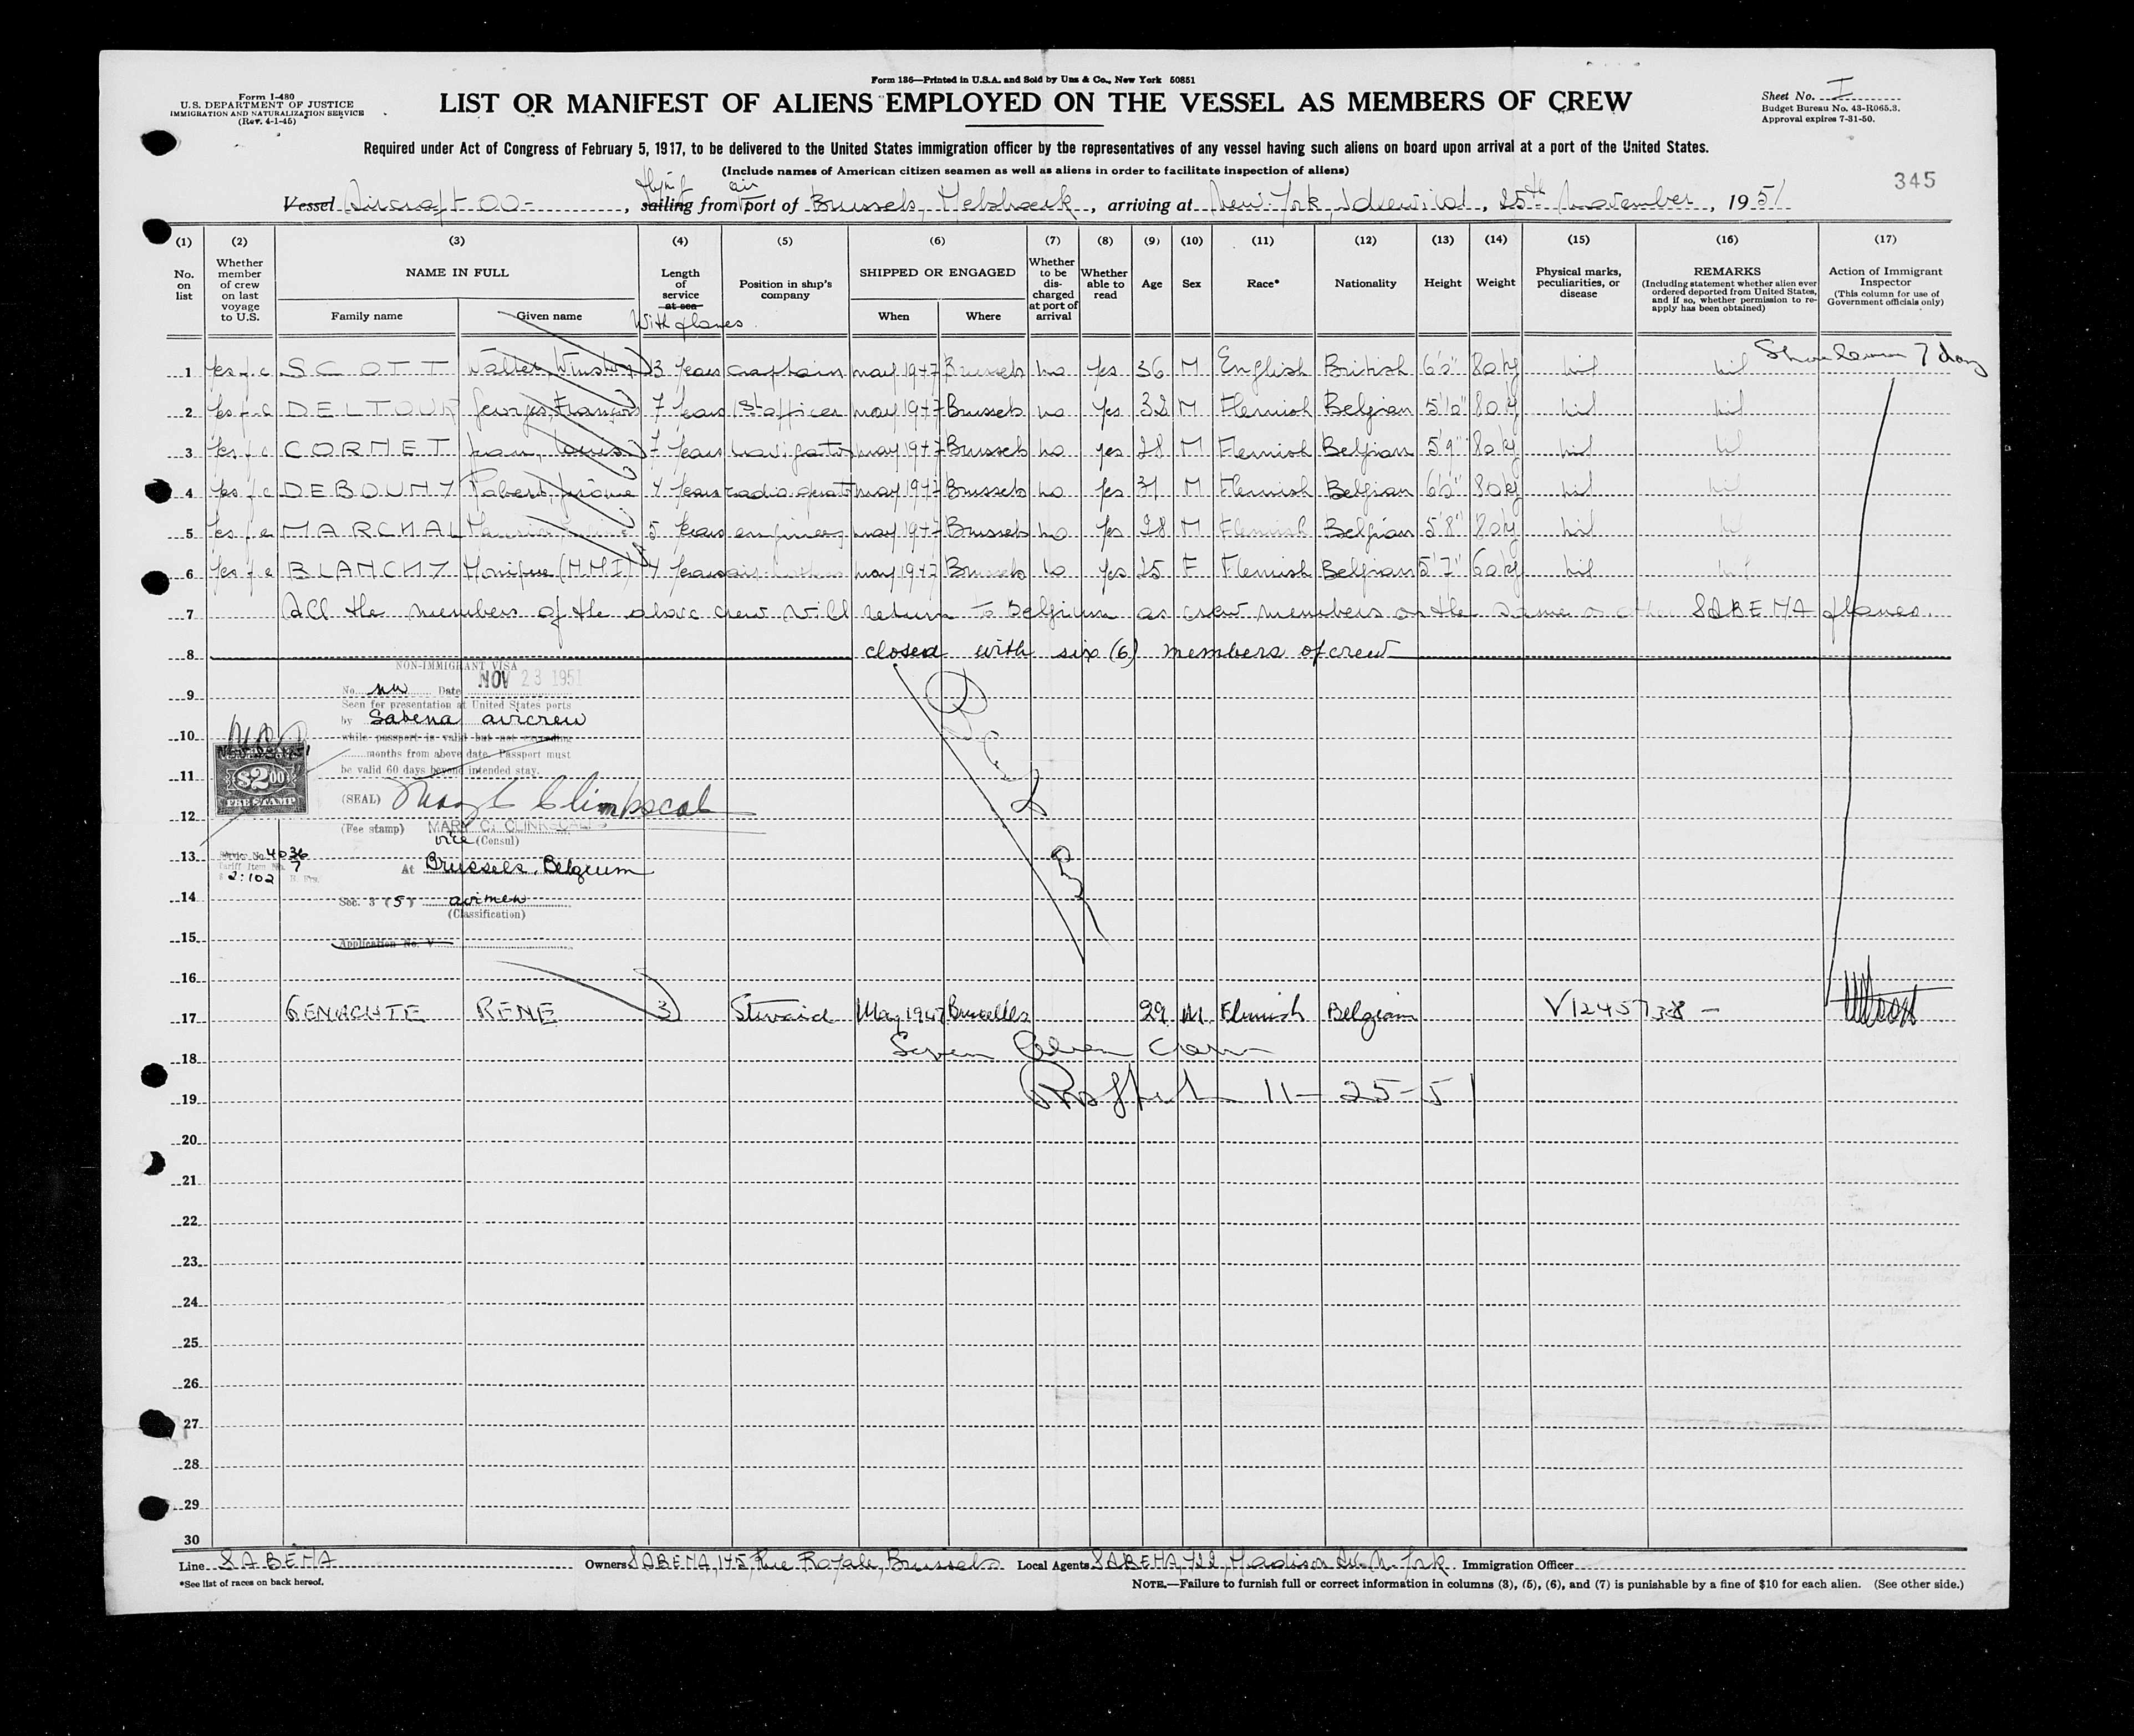 Form 136—Printed in U.S.A. and Sold by Unz & Co., New York 50851
Form I-480
U.S. DEPARTMENT OF JUSTICE
IMMIGRATION AND NATURALIZATION SERVICE
(Rev. 4-1-45)
LIST OR MANIFEST OF ALIENS EMPLOYED ON THE VESSEL AS MEMBERS OF CREW
Sheet No. I
Budget Bureau No. 43-R065.3.
Approval expires 7-31-50.
Required under Act of Congress of February 5, 1917, to be delivered to the United States immigration officer by the representatives of any vessel having such aliens on board upon arrival at a port of the United States.
(Include names of American citizen seamen as well as aliens in order to facilitate inspection of aliens)
345
flying air
Vessel Aircraft OO- , sailing from port of Brussels, Melsbroek , arriving at New-York, Idlewild , 25th November , 1951
(1) (2) (3) (4) (5) (6) (7) (8) (9) (10) (11) (12) (13) (14) (15) (16) (17)
No. on list
Whether member of crew on last voyage to U.S.
NAME IN FULL
Family name
Given name
Length of service at sea
With planes
Position in ship's company
SHIPPED OR ENGAGED
When
Where
Whether to be discharged at port of arrival
Whether able to read
Age
Sex
Race*
Nationality
Height
Weight
Physical marks, peculiarities, or disease
REMARKS
(Including statement whether alien ever ordered deported from United States, and if so, whether permission to reapply has been obtained)
Action of Immigrant Inspector
(This column for use of Government officials only)
7 day
1 SCOTT Walter, Winston 13 years captain may 1947 Brussels no yes 36 M English British 6'0" 80 kg nil nil
2 DELTOUR Georges, François 7 years 1st officer may 1947 Brussels no yes 32 M Flemish Belgian 5'10" 80 kg nil nil
3 CORNET Jean, Louis 7 years navigator may 1947 Brussels no yes 28 M Flemish Belgian 5'9" 80 kg nil nil
4 DEBOUNY Robert, Jérôme 4 years radio operator may 1947 Brussels no yes 31 M Flemish Belgian 6'0" 80 kg nil nil
5 MARCHAL 5 years engineer may 1947 Brussels no yes 28 M Flemish Belgian 5'8" 80 kg nil nil
6 BLANCHY Monique (M.M.I) 4 years air hostess may 1947 Brussels no yes 25 F Flemish Belgian 5'7" 60 kg nil nil
7 All the members of the above crew will return to Belgium as crew members on the same or other SABENA planes.
8 closed with six (6) members of crew
NON-IMMIGRANT VISA
No. Date NOV 23 1951
9
Seen for presentation at United States ports
by Sabena aircrew
10
while passport is valid but not exceeding
months from above date. Passport must
be valid 60 days beyond intended stay.
11
$2.00
FEE STAMP
(SEAL)
12
(Fee stamp) MARY C. CLINKSCALES
vice (Consul)
13
Service No. 4036
Tariff Item No. 7
2:102
At Brussels, Belgium
14
Sec. 3 (5) airmen
(Classification)
15
Application No. V
16
17 GENACHTE RENE 3 Steward May 1947 Bruxelles 29 M Flemish Belgian V1245738 —
18 Seven Alien Crew
19 11-25-51
20
21
22
23
24
25
26
27
28
29
30
Line SABENA Owners SABENA, 145, Rue Royale, Brussels Local Agents SABENA, 422, Madison Av. N. York. Immigration Officer
*See list of races on back hereof.
NOTE.—Failure to furnish full or correct information in columns (3), (5), (6), and (7) is punishable by a fine of $10 for each alien. (See other side.)